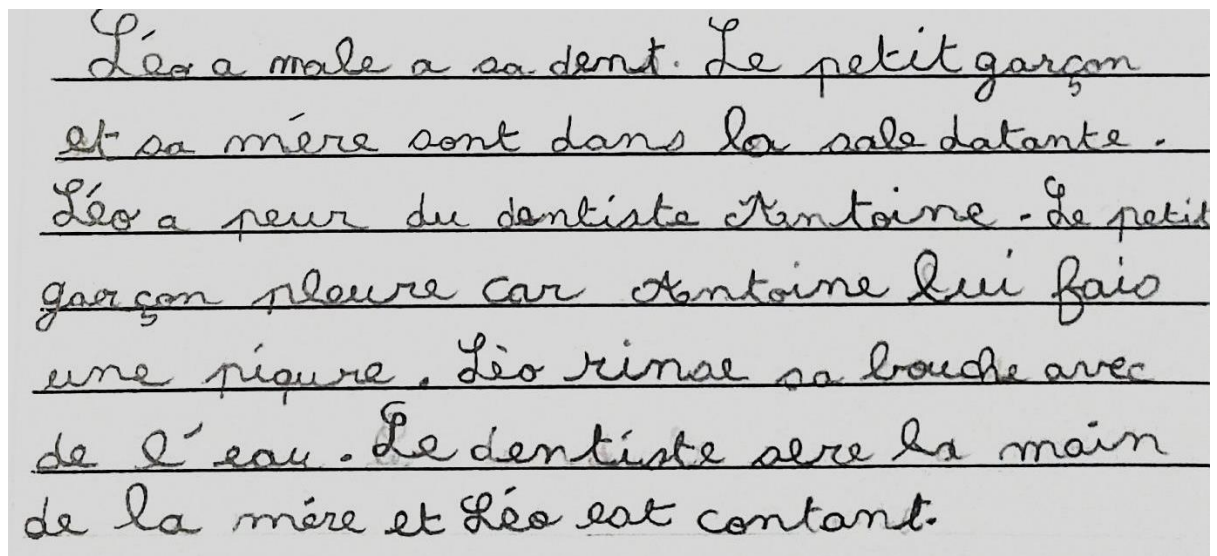 Léo a male a sa dent. Le petit garçon
et sa mére sont dans la sale datante.
Léo a peur du dentiste Antoine. Le petit
garçon pleure car Antoine lui fais
une piqure. Lèo rinse sa bouche avec
de l'eau. Le dentiste sere la main
de la mére et Léo est contant.